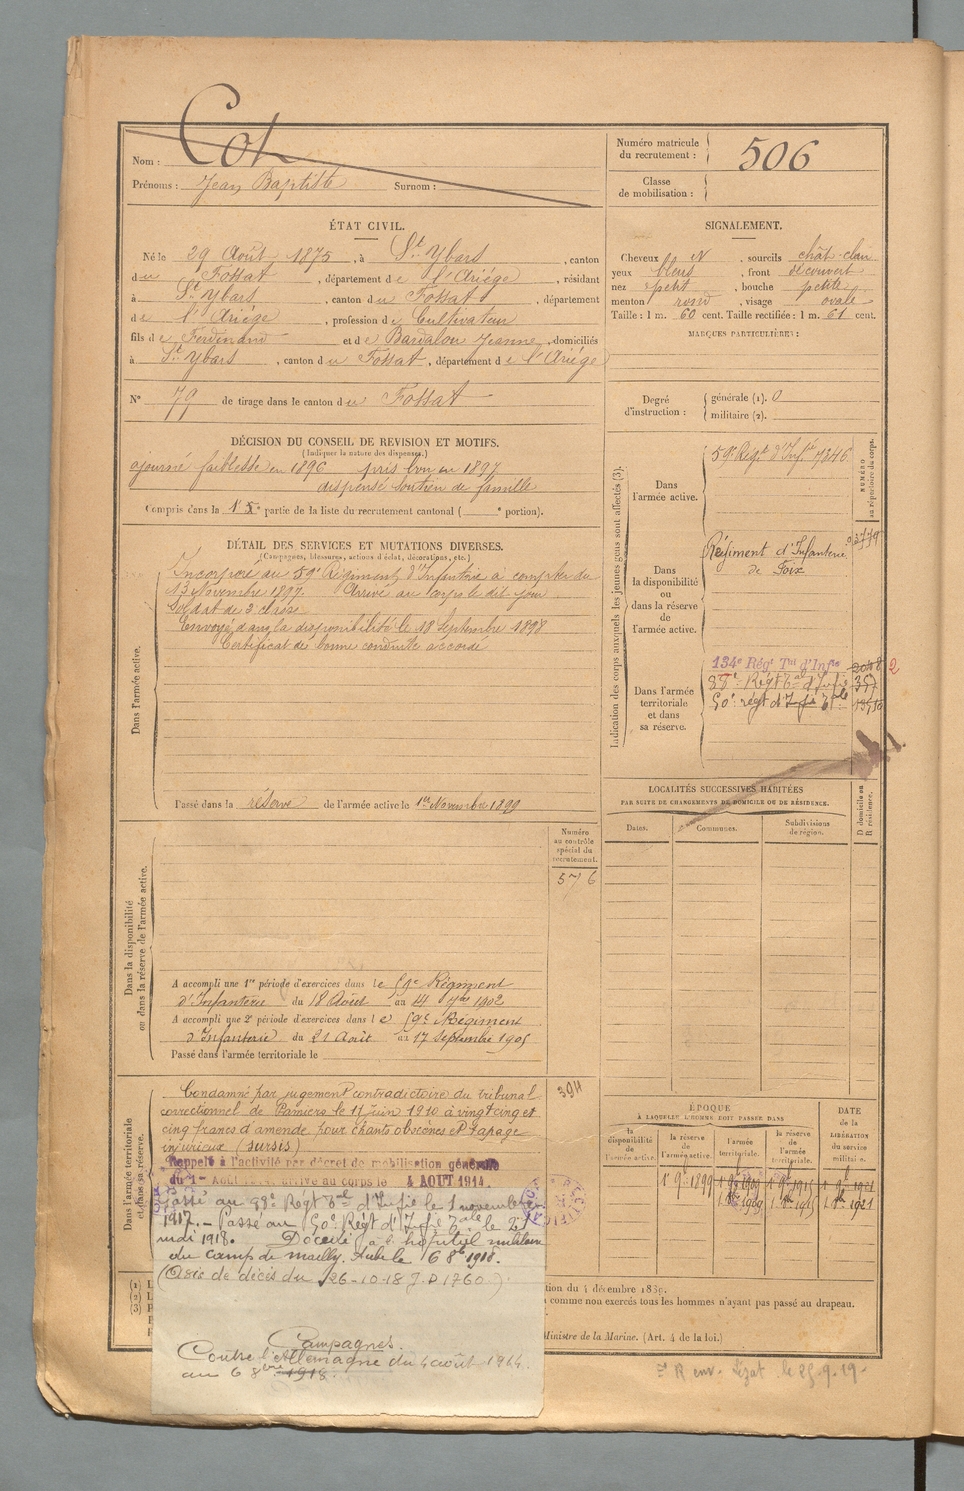 Nom : Cot
Prénoms : Jean Baptiste Surnom :
Numéro matricule du recrutement : 506
Classe de mobilisation :
ÉTAT CIVIL.
Né le 29 Août 1875, à St Ybars, canton
du Fossat, département de l'Ariége, résidant
à St Ybars, canton du Fossat, département
de l'Ariége, profession de Cultivateur
fils de Ferdinand et de Bardalou Jeanne, domiciliés
à St Ybars, canton du Fossat, département de l'Ariége
N° 79 de tirage dans le canton du Fossat
SIGNALEMENT.
Cheveux N, sourcils chât-clair
yeux bleus, front découvert
nez petit, bouche petite
menton rond, visage ovale
Taille : 1 m. 60 cent. Taille rectifiée : 1 m. 61 cent.
MARQUES PARTICULIÈRES :
Degré d'instruction : générale (1). 0
militaire (2).
DÉCISION DU CONSEIL DE REVISION ET MOTIFS.
(Indiquer la nature des dispenses.)
ajourné faiblesse en 1896 pris bon en 1897
dispensé soutien de famille
Compris dans la partie de la liste du recrutement cantonal ( portion).
DÉTAIL DES SERVICES ET MUTATIONS DIVERSES.
(Campagnes, blessures, actions d'éclat, décorations, etc.)
Dans l'armée active.
Incorporé au 59e Régiment d'Infanterie à compter du
13 Novembre 1897. Arrivé au corps le dit jour
Soldat de 2e classe
Envoyé dans la disponibilité le 18 Septembre 1898
Certificat de bonne conduite accordé
Passé dans la réserve de l'armée active le 1er Novembre 1899
Indication des corps auxquels les jeunes gens sont affectés (3).
NUMÉRO au répertoire du corps.
Dans l'armée active.
59e Régt d'Infie 7346
Dans la disponibilité ou dans la réserve de l'armée active.
Régiment d'Infanterie 3779
de Foix
Dans l'armée territoriale et dans sa réserve.
134e Régt Tal d'Infie 2048 2
Régt Tal d'Infie
50e régt d'Infie Tale
LOCALITÉS SUCCESSIVES HABITÉES
PAR SUITE DE CHANGEMENTS DE DOMICILE OU DE RÉSIDENCE.
Dates. Communes. Subdivisions de région.
D domicile ou R résidence.
Dans la disponibilité ou dans la réserve de l'armée active.
Numéro au contrôle spécial du recrutement.
576
A accompli une 1re période d'exercices dans le 59e Régiment
d'Infanterie du 18 Août au 14 7bre 1902
A accompli une 2e période d'exercices dans le 59e Régiment
d'Infanterie du 21 Août au 17 Septembre 1905
Passé dans l'armée territoriale le
Dans l'armée territoriale et dans sa réserve.
394
Condamné par jugement contradictoire du tribunal
correctionnel de Pamiers le 17 juin 1910 à vingt cinq et
cinq francs d'amende pour chants obscènes et tapage
injurieux (sursis)
Rappelé à l'activité par décret de mobilisation générale
du 1er AOUT 1914. arrivé au corps le 4 AOUT 1914.
Passé au Régt Tal d'Infie le 1 novembre
1917. - Passé au 50e Régt d'Infie Tale le 21
mai 1918. Décédé à l'hôpital militaire
du camp de Mailly. Aube le 6 8bre 1918.
(Avis de décès du 26-10-18 J.D 1760)
Campagnes.
Contre l'Allemagne du 4 août 1914
au 6 8bre 1918.
ÉPOQUE
À LAQUELLE L'HOMME DOIT PASSER DANS
la disponibilité de l'armée active.
la réserve de l'armée active.
l'armée territoriale.
la réserve de l'armée territoriale.
DATE de la LIBÉRATION du service militaire.
1 9bre 1899 1 9bre 1909 1 9bre 1915 1 9bre 1921
1 8bre 1909 1 8bre 1915 1 8bre 1921
comme non exercés tous les hommes n'ayant pas passé au drapeau.
Ministre de la Marine. (Art. 4 de la loi.)
R env. Lézat le 25-9-19-